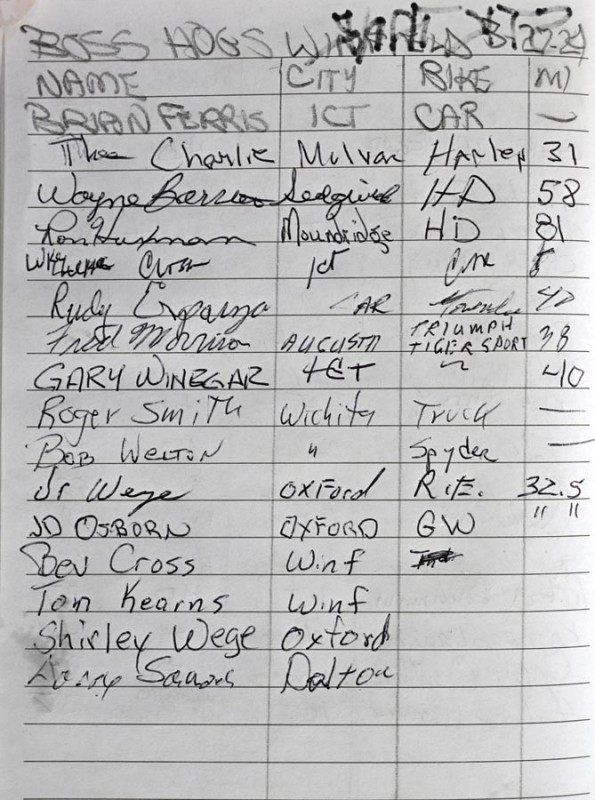 BOSS HOGS
NAME CITY BIKE MI
BRIAN FERRIS ICT CAR —
Charlie Mulvan Harley 31
Wayne Sedgwick HD 58
Ron Moundridge HD 81
Ict Car
Rudy Esparza CAR
Fred Morrison AUGUSTA TRIUMPH TIGER SPORT 38
GARY WINEGAR ICT " 40
Roger Smith Wichita Truck —
BOB WELTON " Spyder —
Jr Wege OXFord 32.5
JD OSBORN OXFORD GW " "
Bev Cross Winf
Tom Kearns Winf
Shirley Wege Oxford
Dalton